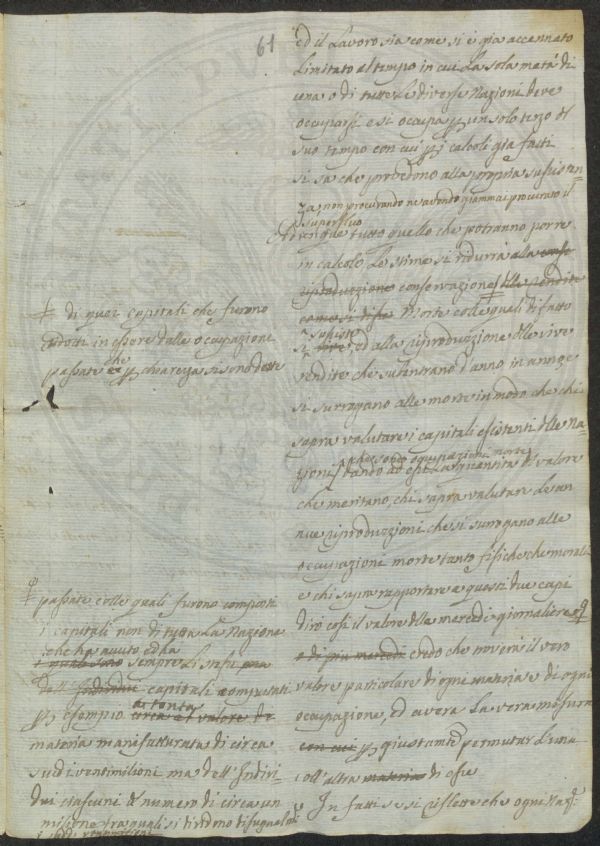 61
ed il Lavoro sia come si è già accennato
Limitato al tempo in cui La sola metà di
una o di tutte Le diverse Nazioni deve
occuparsi e si occupa p un solo terzo del
suo tempo con cui p i calcoli già fatti
si sa che provedono alla propria sussisten-
za, non procurando ne avendo giammai procurato il
superfluo
Adunque tutto quello che potranno porre
in calcolo Le stime si ridurrà alla
riproduzione conservazione delle vendite
come si disse Morte colle quali di fatto
sussiste
si vive, ed alla riproduzione delle vive
vendite che subentrano d'anno in anno, e
si surrogano alle morte in modo che chi
saprà valutare i capitali esistenti delle Na-
che sono occupazioni morte
zioni dando ad essi La quantità di valore
che meritano, chi saprà valutare Le an
nue riproduzioni che si surrogano alle
occupazioni morte tanto fisiche che morali
e chi saprà rapportare a questi due capi
dirò così il valore delle mercedi giornaliere
o di più mercedi credo che troverà il vero
valore particolare di ogni materia e di ogni
occupazione, ed avrà La vera misura
con cui p giustamte permutar L'una
coll'altra materia di esse
In fatti se si riflette che ogni
di quei capitali che furono
ridotti in essere dalle occupazioni
passate che p chiarezza si sono dette
passate, colle quali furono composti
i capitali non di tutta La Nazione
che ha avuto ed ha
e quale sono sempre Li stessi
dell' Individui capitali computati
p esempio circa al valore di
di tanta
materia manifatturata di circa
sudi ventimilioni ma dell' Indivi-
dui ciascuni di numero di circa un
milione tra quali si dividono disugualmte
i sudi ventimilioni